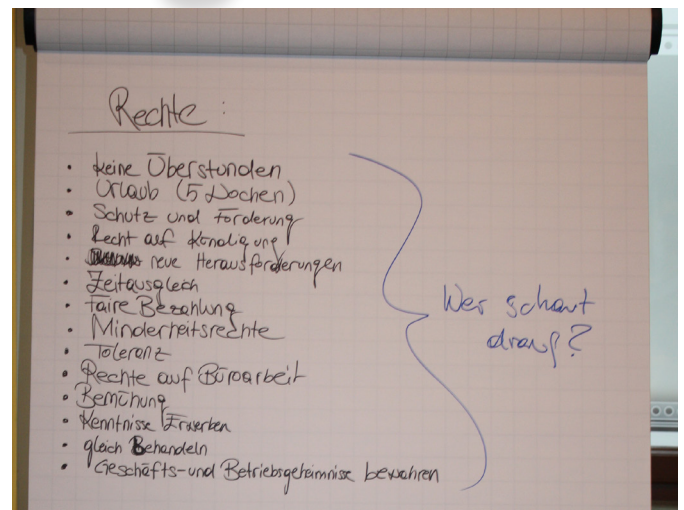 Rechte:
• keine Überstunden
• Urlaub (5 Wochen)
• Schutz und Förderung
• Recht auf Kündigung
• neue Herausforderungen
• Zeitausgleich
• Faire Bezahlung
• Minderheitsrechte
• Toleranz
• Rechte auf Büroarbeit
• Bemühung
• Kenntnisse Erwerben
• gleich Behandeln
• Geschäfts-und Betriebsgeheimnisse bewahren
Wer schaut
drauf?